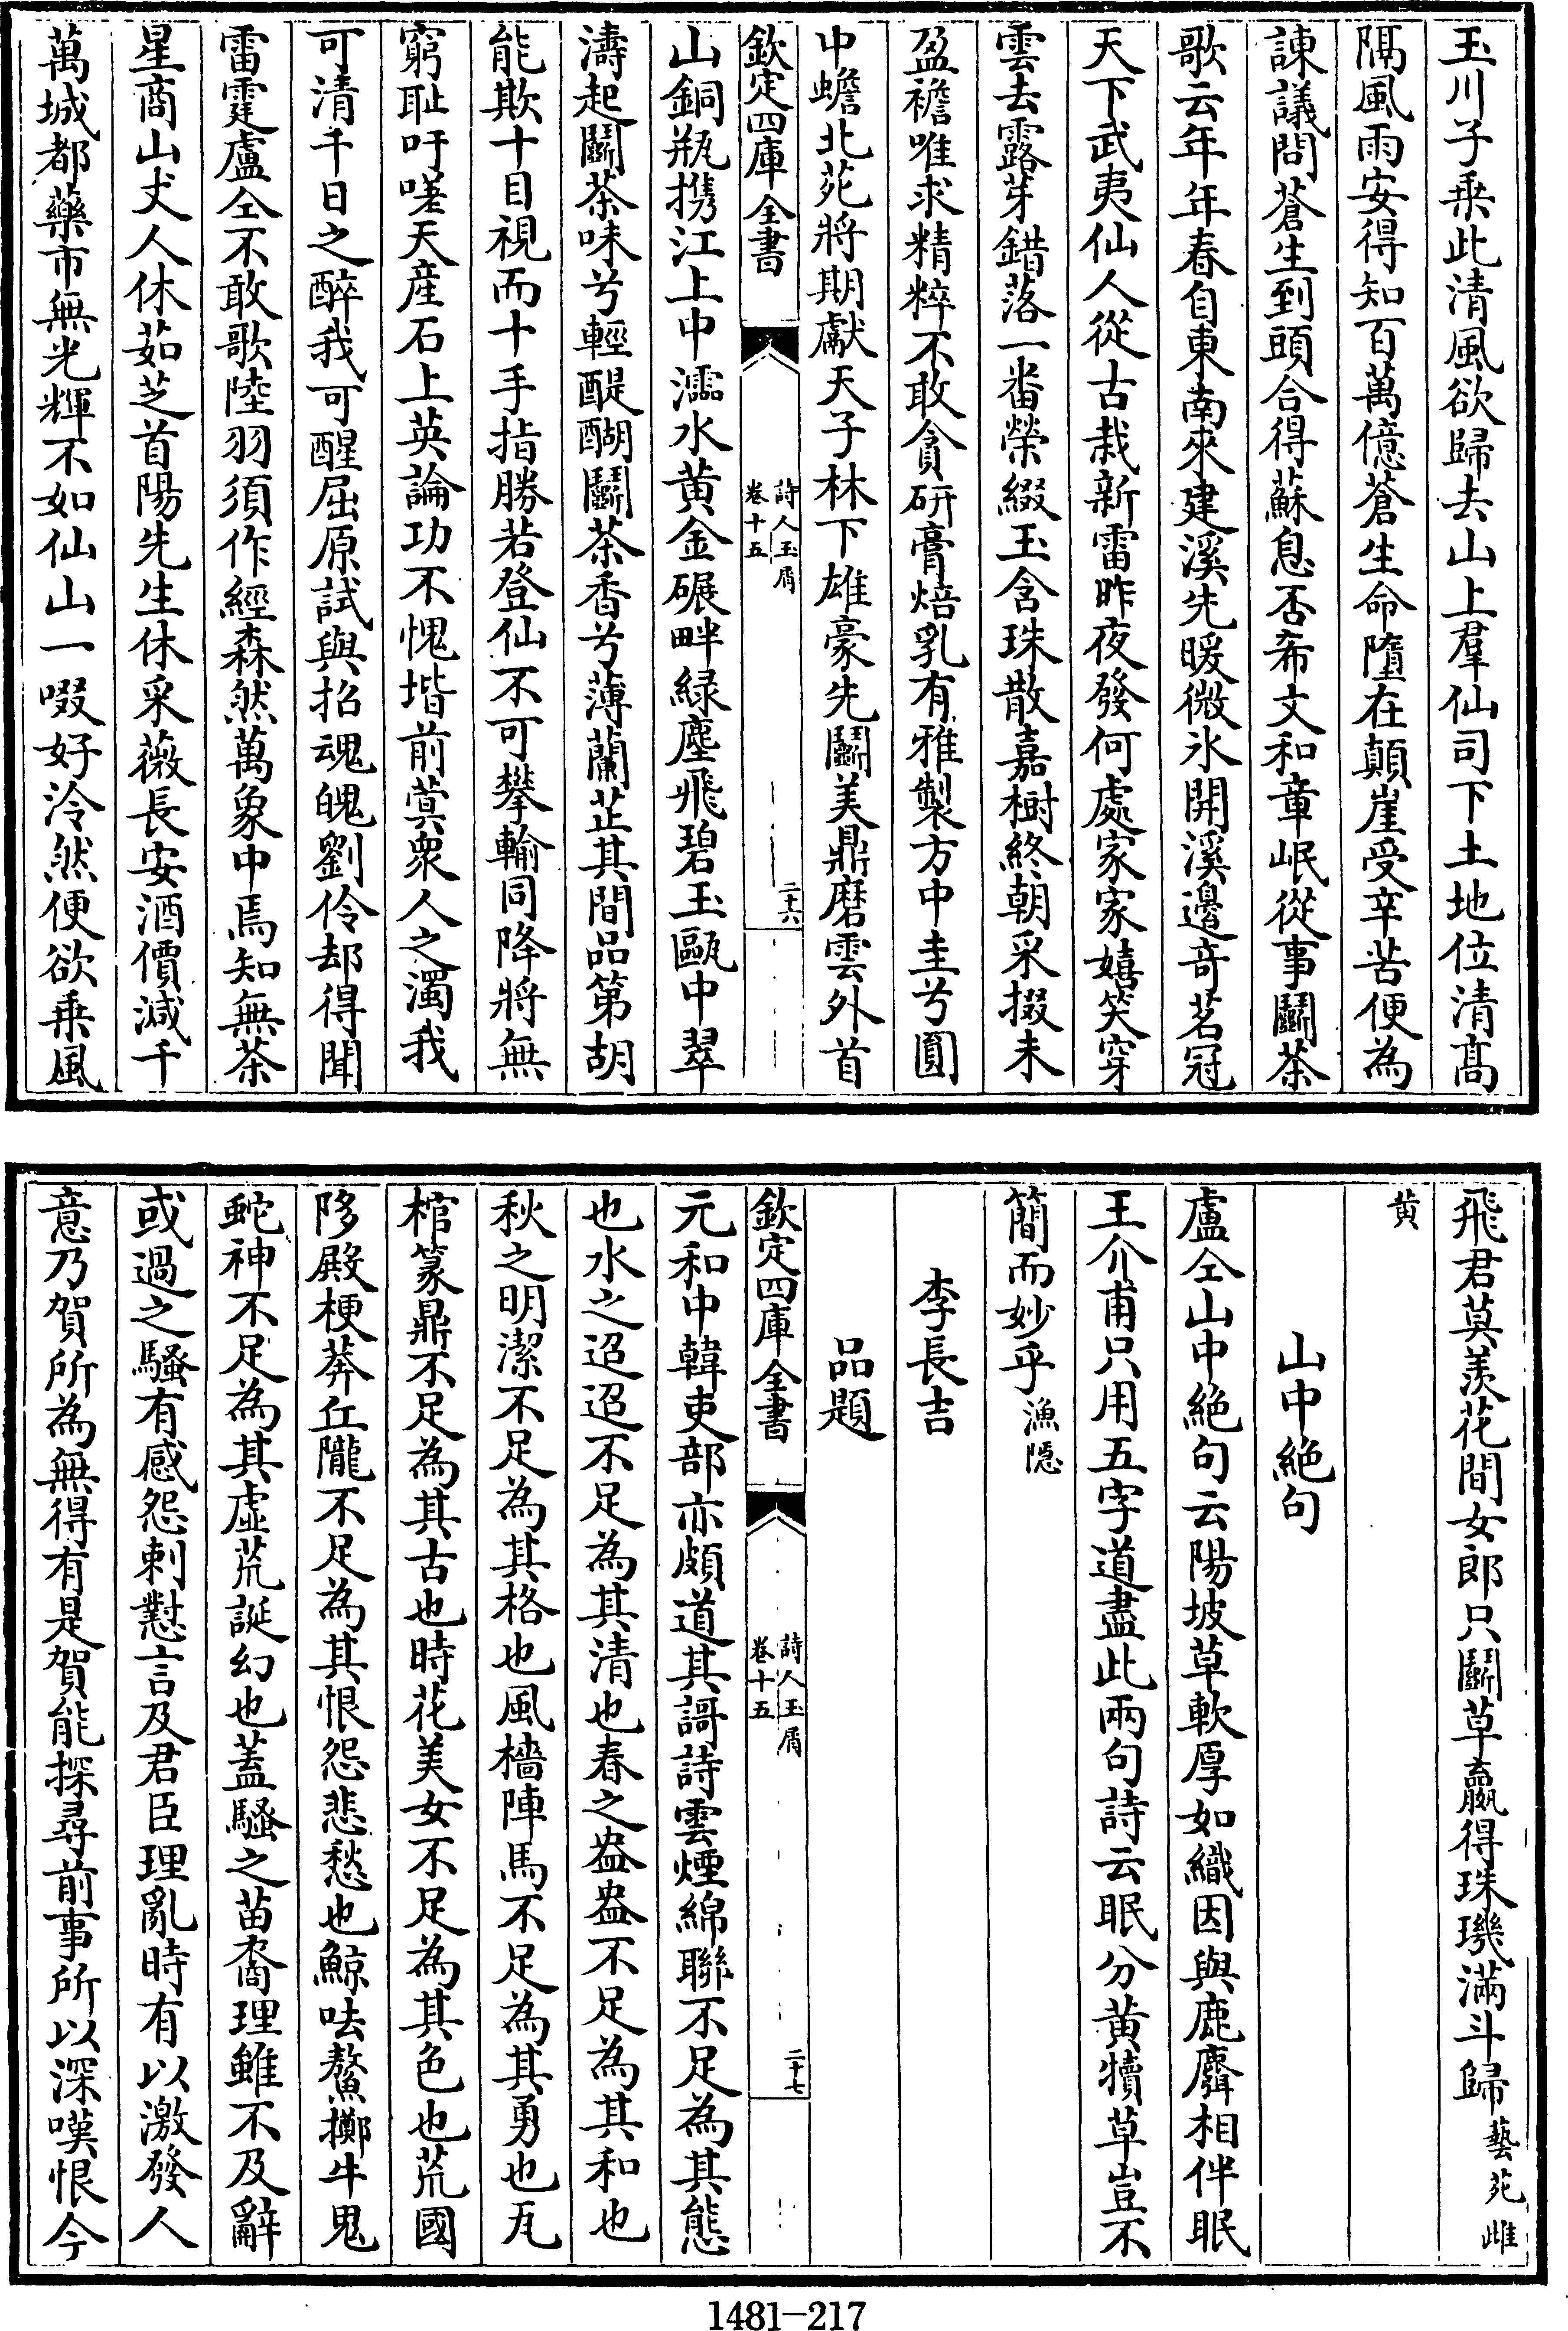 玉川子乘此清風欲歸去山上羣仙司下土地位清髙
隔風雨安得知百萬億蒼生命墮在顛崖受辛苦便為
諫議問蒼生到頭合得蘇息否希文和章岷從事鬭茶
歌云年年春自東南來建溪先暖微氷開溪邊奇茗冠
天下武夷仙人從古栽新雷昨夜發何處家家嬉笑穿
雲去露芽錯落一番榮綴玉含珠散嘉樹終朝采掇未
盈襜唯求精粹不敢貪研膏焙乳有雅製方中圭兮圓
中蟾北苑將期獻天子林下雄豪先鬭美鼎磨雲外首
欽定四庫全書
詩人玉屑
卷十五
二十六
山銅瓶携江上中濡水黄金碾畔緑塵飛碧玉甌中翠
濤起鬭茶味兮輕醍醐鬭茶香兮薄蘭芷其間品第胡
能欺十目視而十手指勝若登仙不可攀輸同降將無
窮恥吁嗟天産石上英論功不愧堦前蓂衆人之濁我
可清千日之醉我可醒屈原試與招魂魄劉伶却得聞
雷霆盧仝不敢歌陸羽須作經森然萬象中焉知無茶
星商山丈人休茹芝首陽先生休采薇長安酒價減千
萬城都藥市無光輝不如仙山一啜好泠然便欲乘風
飛君莫羨花間女郎只鬭草贏得珠璣滿斗歸藝苑雌
黄
山中絶句
盧仝山中絶句云陽坡草軟厚如織因與鹿麛相伴眠
王介甫只用五字道盡此兩句詩云眠分黄犢草豈不
簡而妙乎漁隱
李長吉
品題
欽定四庫全書
詩人玉屑
卷十五
二十七
元和中韓吏部亦頗道其謌詩雲煙綿聯不足為其態
也水之迢迢不足為其清也春之盎盎不足為其和也
秋之明潔不足為其格也風檣陣馬不足為其勇也瓦
棺篆鼎不足為其古也時花美女不足為其色也荒國
陊殿梗莽丘隴不足為其恨怨悲愁也鯨呿鰲擲牛鬼
蛇神不足為其虚荒誕幻也蓋騷之苗裔理雖不及辭
或過之騷有感怨刺懟言及君臣理亂時有以激發人
意乃賀所為無得有是賀能探尋前事所以深嘆恨今
1481-217